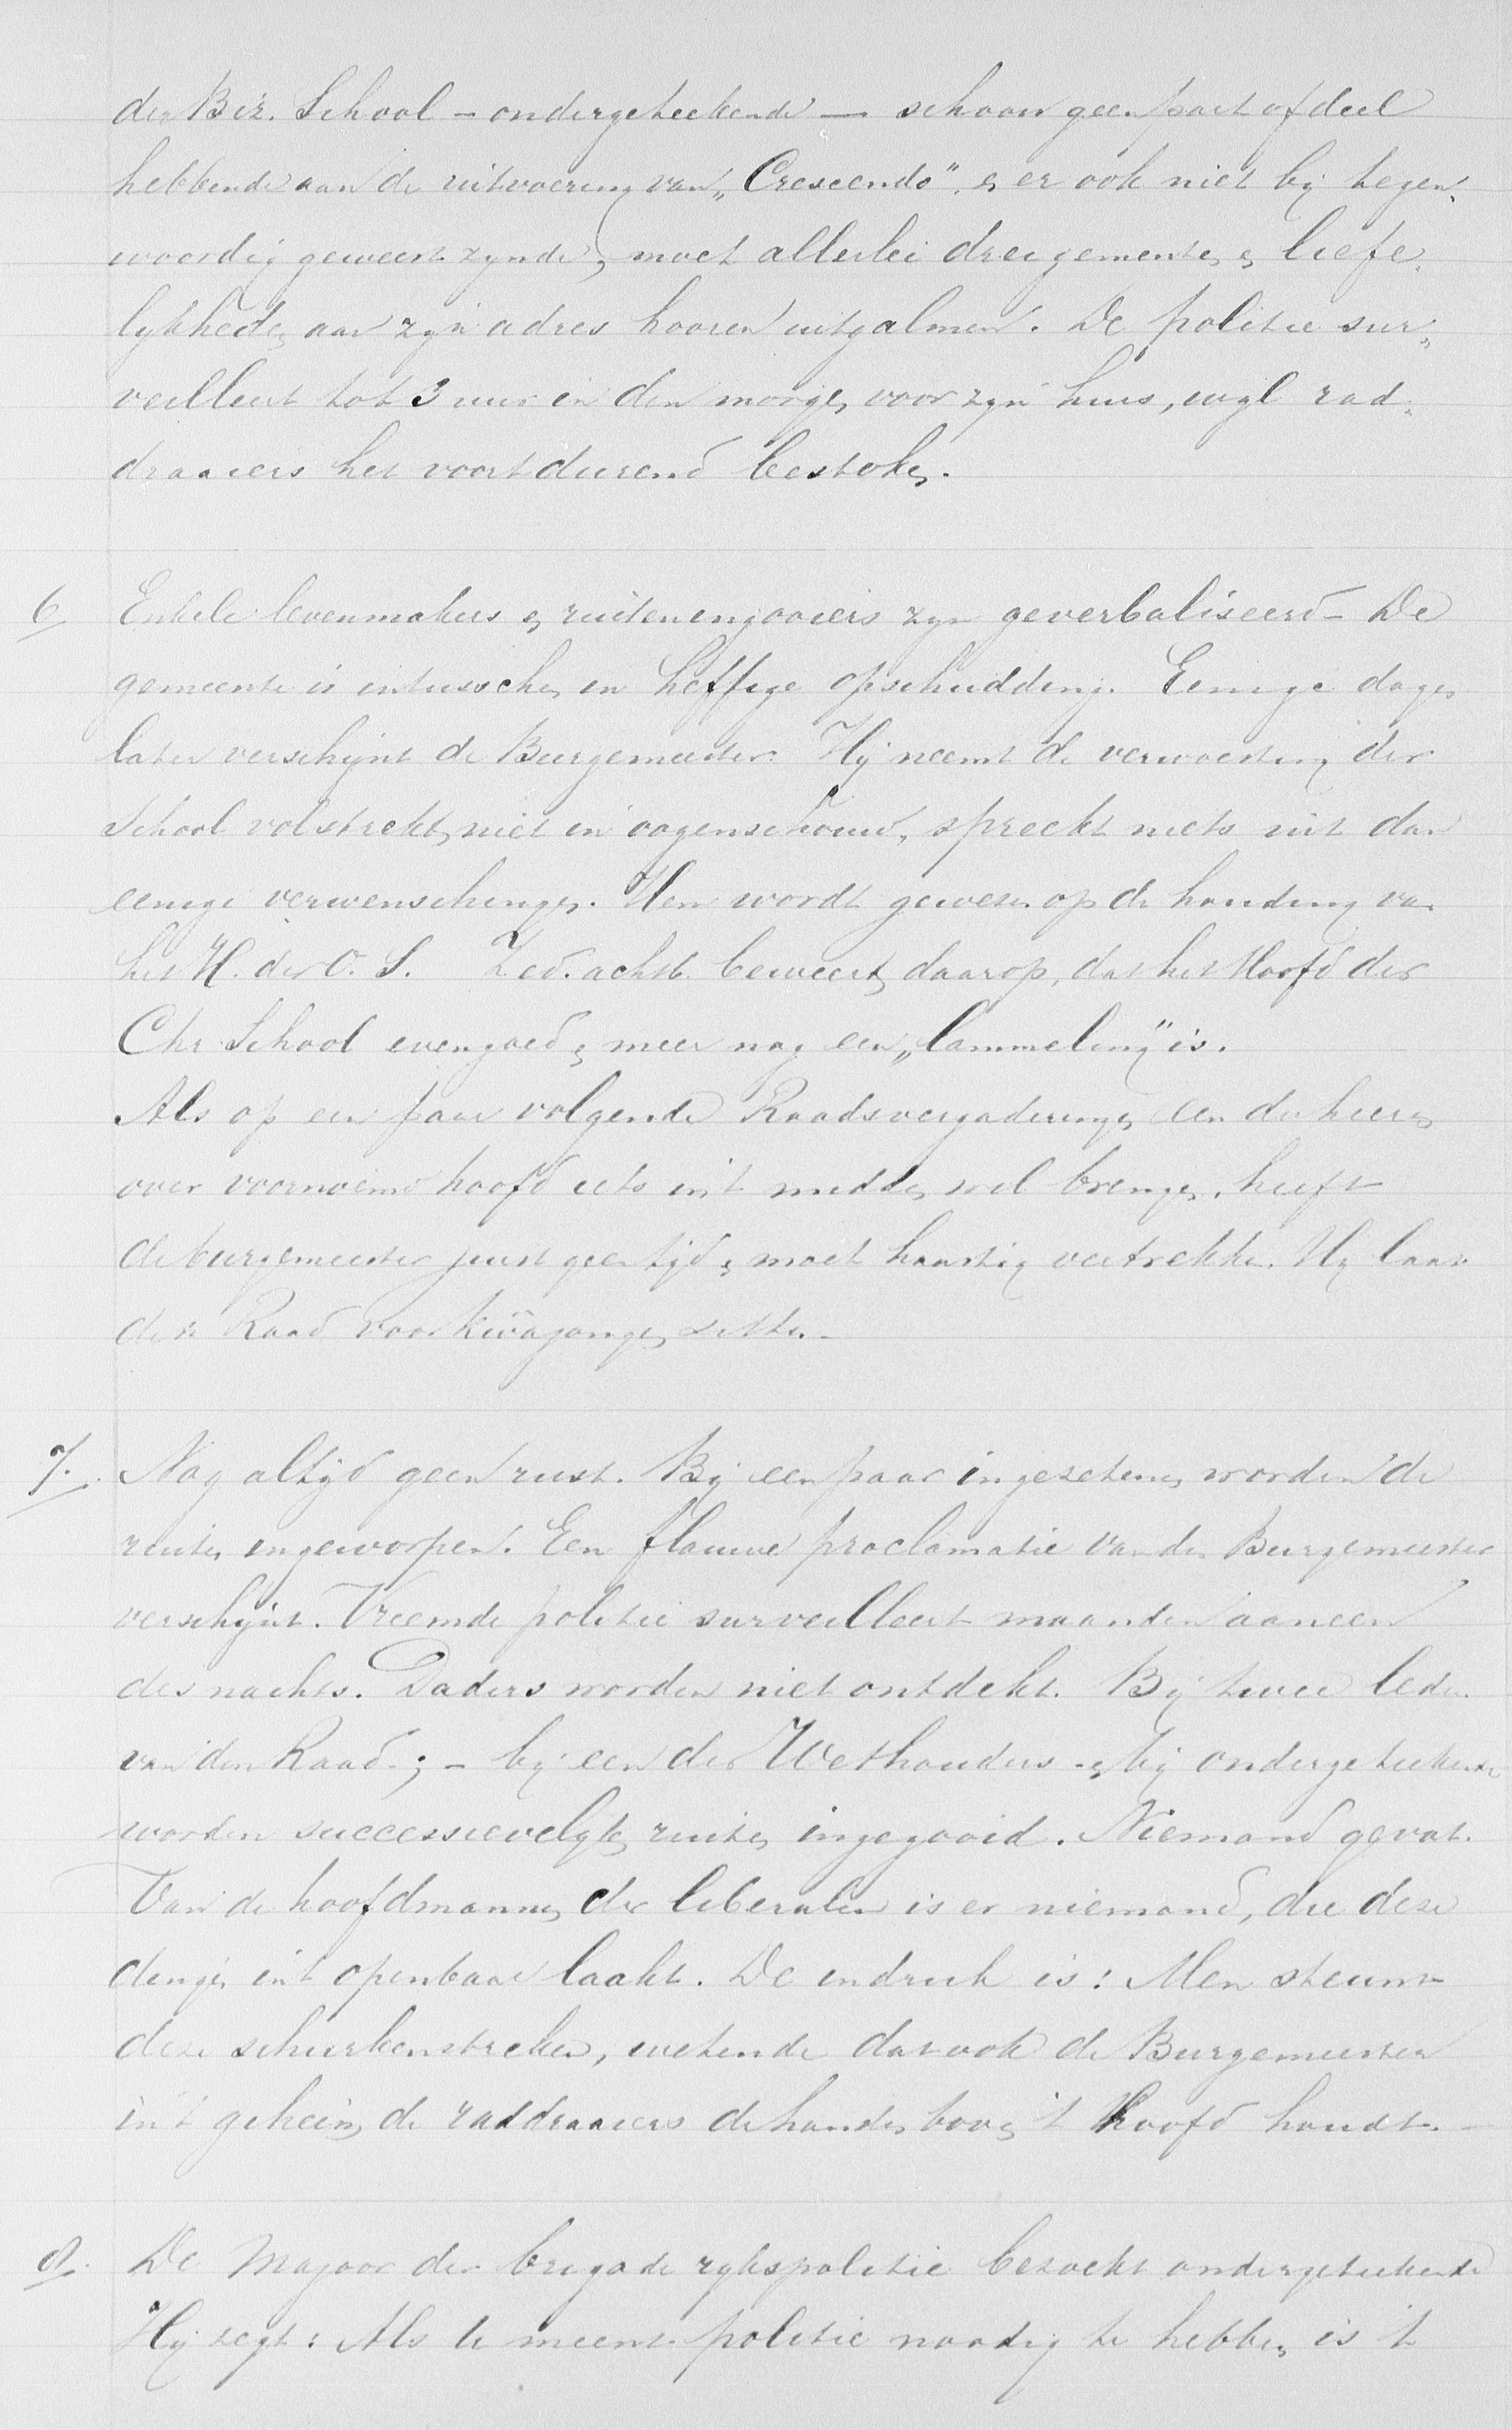 der Biz. School – ondergeteekende — schoon geen part of deel
hebbende aan de uitvoering van „Crescendo". en er ook niet bij tegen„
woordig geweest zynde, moet allerlei dreigementen en liefe„
lykheden aan zyn adres hooren uitgalmen. De politie sur„
veilleert tot 3 uur in den morgen voor zyn huis, wyl rad„
draaiers het voortdurend bestoken.
6 Enkele levenmakers en ruiteningooiers zyn geverbaliseerd – De
gemeente is intusschen in heftige opschudding. Eenige dagen
later verschijnt de Burgemeester. Hij neemt de verwoesting der
School volstrekt niet in oogenschouw, spreekt niets uit dan
eenige verwenschingen. Hem wordt gewezen op de houding van
het H. der O. S. Zed. achtb. beweert daarop, dat het Hoofd der
Chr. School evengoed en meer nog een „lammeling" is.
Als op een paar volgende Raadsvergaderingen een der heeren
over voornoemd hoofd iets in't midden wil brengen, heeft
de burgemeester juist geen tijd en moet haastig vertrekken. Hij laat
den Raad voor kwajongen zitten. –
7. Nog altijd geen rust. Bij een paar ingezetenen worden de
ruiten ingeworpen. Een flauwe proclamatie van den Burgemeester
verschijnt. Vreemde politie surveilleert maanden aaneen
des nachts. Daders worden niet ontdekt. Bij twee leden
van den Raad –; – bij een der Wethouders – en bij ondergeteekende
worden successievelijk ruiten ingegooid. Niemand gevat.
Van de hoofdmannen der liberalen is er niemand, die deze
dingen in't openbaar laakt. De indruk is: Men steunt
deze schurkenstreken, wetende dat ook de Burgemeester
in't geheim de raddraaiers de handen boven 't hoofd houdt. –
8. De Majoor der brigade rykspolitie bezoekt ondergeteekende
Hij zegt: Als U meent politie noodig te hebben is 't